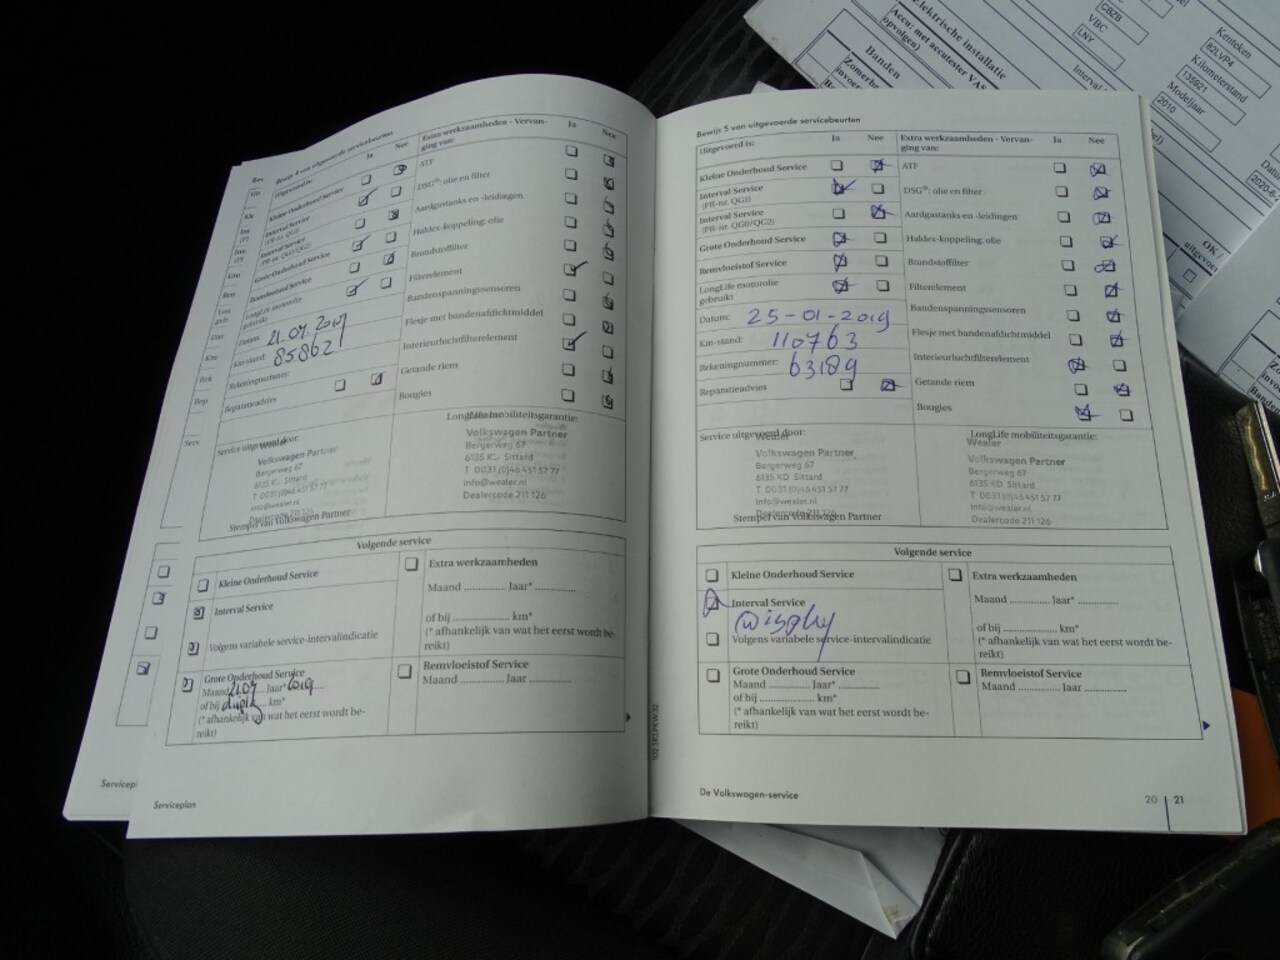 Bewijs 4 van uitgevoerde servicebeurten
Uitgevoerd is:
Ja
Nee
Extra werkzaamheden - Vervan-
ging van:
Ja
Nee
Kleine Onderhoud Service
Interval Service
(PR-nr. QG1)
Interval Service
(PR-nr. QG0/QG2)
Grote Onderhoud Service
Remvloeistof Service
LongLife motorolie
gebruikt
Datum:
Km-stand: 85862
Rekeningnummer:
Reparatieadvies
ATF
DSG®: olie en filter
Aardgastanks en -leidingen
Haldex-koppeling: olie
Brandstoffilter
Filterelement
Bandenspanningssensoren
Flesje met bandenafdichtmiddel
Interieurluchtfilterelement
Getande riem
Bougies
Service uitgevoerd door:
Wealer
Volkswagen Partner
Bergerweg 67
6135 KD Sittard
T 0031 (0)46 451 57 77
info@wealer.nl
Dealercode 211 126
Stempel van Volkswagen Partner
LongLife mobiliteitsgarantie:
Volkswagen Partner
Bergerweg 67
6135 KD Sittard
T 0031 (0)46 451 57 77
info@wealer.nl
Dealercode 211 126
Volgende service
Kleine Onderhoud Service
Interval Service
Volgens variabele service-intervalindicatie
Grote Onderhoud Service
Maand Jaar* 2019
of bij km*
(* afhankelijk van wat het eerst wordt be-
reikt)
Extra werkzaamheden
Maand .............. Jaar* ..............
of bij .............. km*
(* afhankelijk van wat het eerst wordt be-
reikt)
Remvloeistof Service
Maand .............. Jaar ..............
Serviceplan
Bewijs 5 van uitgevoerde servicebeurten
Uitgevoerd is:
Ja
Nee
Extra werkzaamheden - Vervan-
ging van:
Ja
Nee
Kleine Onderhoud Service
Interval Service
(PR-nr. QG1)
Interval Service
(PR-nr. QG0/QG2)
Grote Onderhoud Service
Remvloeistof Service
LongLife motorolie
gebruikt
Datum: 25-01-2019
Km-stand: 110763
Rekeningnummer: 63189
Reparatieadvies
ATF
DSG®: olie en filter
Aardgastanks en -leidingen
Haldex-koppeling: olie
Brandstoffilter
Filterelement
Bandenspanningssensoren
Flesje met bandenafdichtmiddel
Interieurluchtfilterelement
Getande riem
Bougies
Service uitgevoerd door:
Wealer
Volkswagen Partner
Bergerweg 67
6135 KD Sittard
T 0031 (0)46 451 57 77
info@wealer.nl
Dealercode 211 126
Stempel van Volkswagen Partner
LongLife mobiliteitsgarantie:
Wealer
Volkswagen Partner
Bergerweg 67
6135 KD Sittard
T 0031 (0)46 451 57 77
info@wealer.nl
Dealercode 211 126
Volgende service
Kleine Onderhoud Service
Interval Service
Volgens variabele service-intervalindicatie
Grote Onderhoud Service
Maand .............. Jaar* ..............
of bij .............. km*
(* afhankelijk van wat het eerst wordt be-
reikt)
Extra werkzaamheden
Maand .............. Jaar* ..............
of bij .............. km*
(* afhankelijk van wat het eerst wordt be-
reikt)
Remvloeistof Service
Maand .............. Jaar ..............
De Volkswagen-service
20 21
Elektrische installatie
Accu: met accutester VAS
opvolgen)
Banden
CBZB
VBC
LNY
Kenteken
82LVP4
Kilometerstand
135921
Modeljaar
2010
OK /
uitgevoer